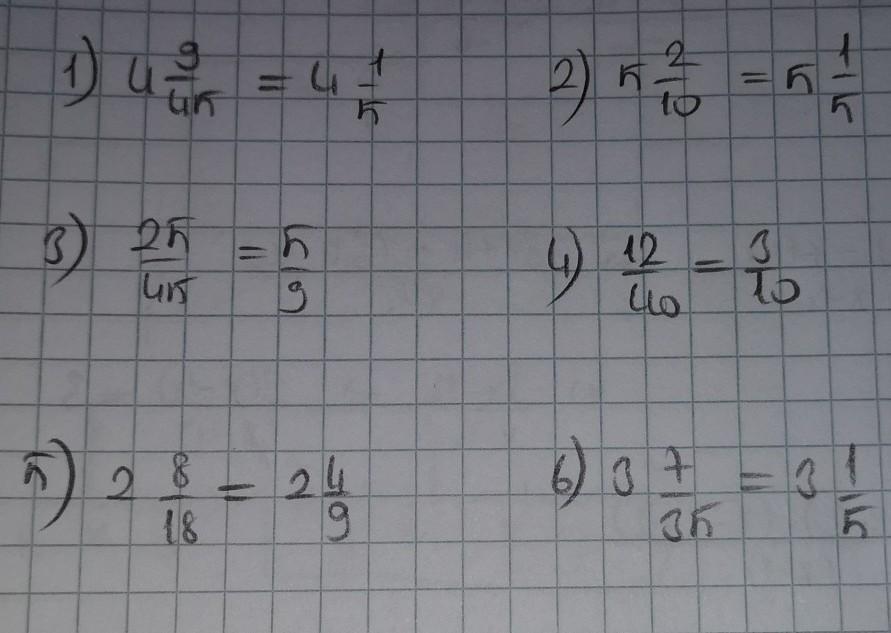 1) 4 9/45 = 4 1/5 2) 5 2/10 = 5 1/5
3) 25/45 = 5/9 4) 12/40 = 3/10
5) 2 8/18 = 2 4/9 6) 3 7/35 = 3 1/5